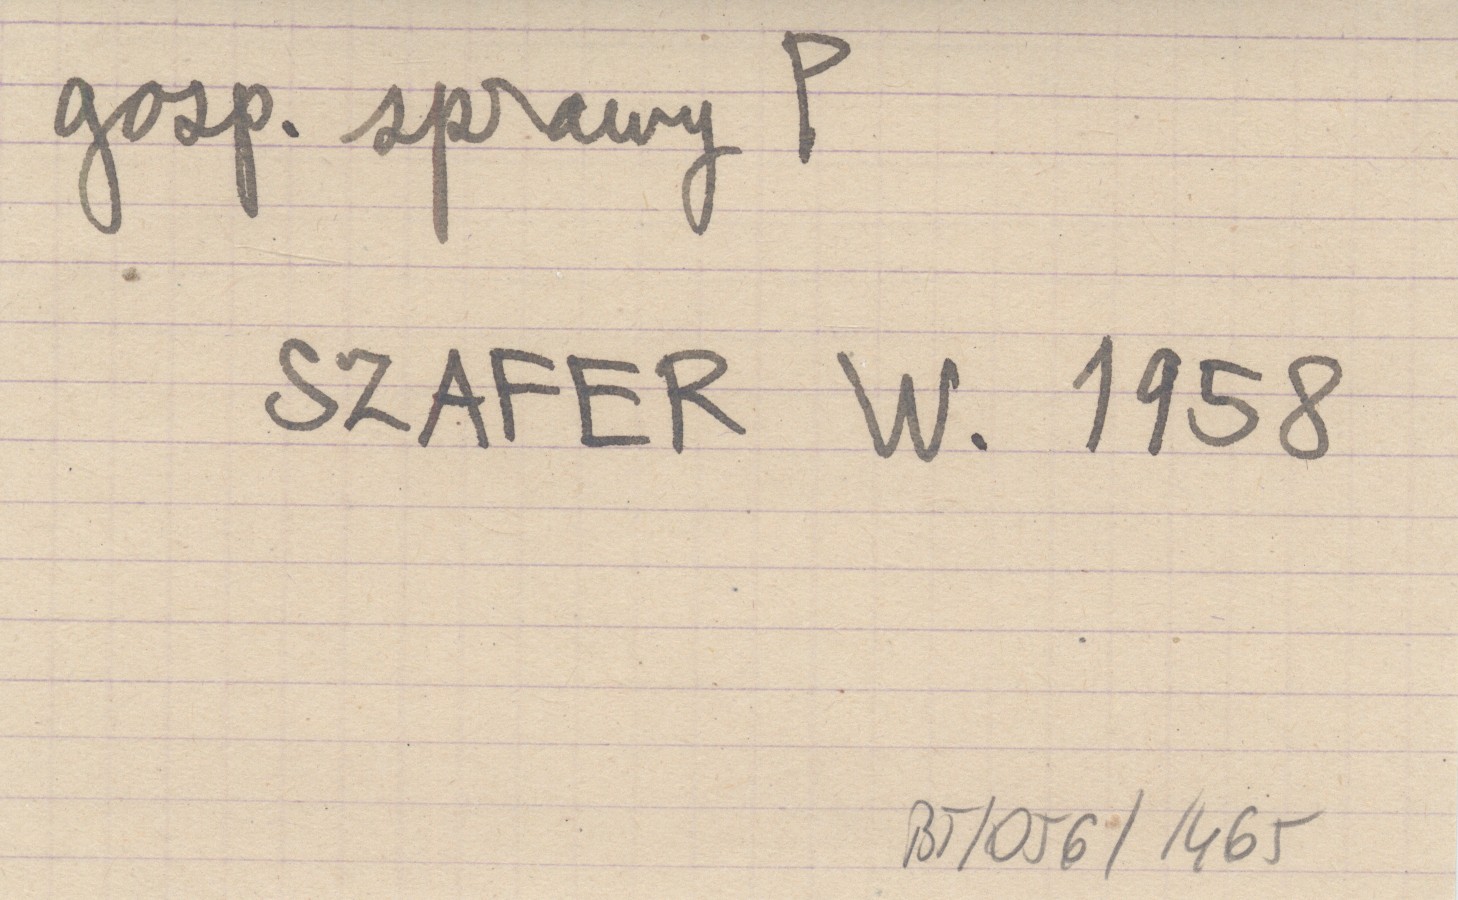 gosp. sprawy P
SZAFER W. 1958
BT/056/1465